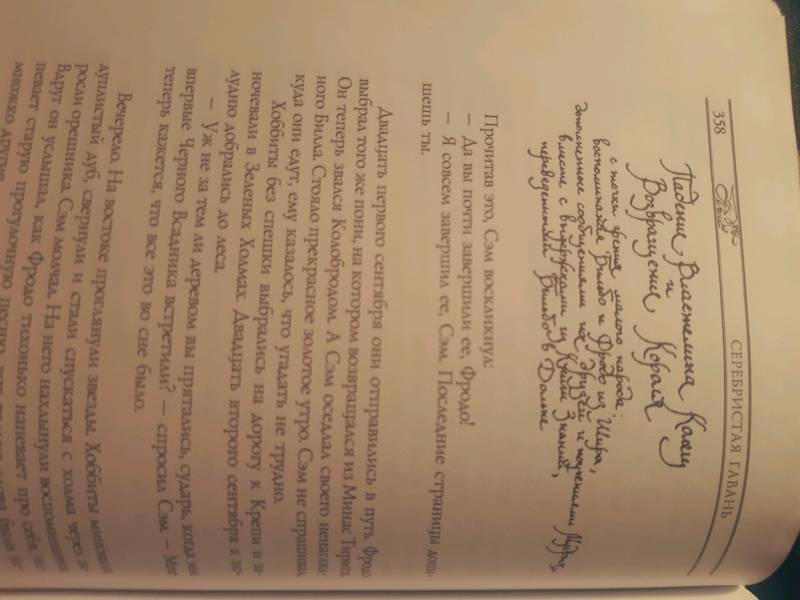 358
СЕРЕБРИСТАЯ ГАВАНЬ
Падение Властелина Колец
и
Возвращение Короля
с точки зрения малого народа;
воспоминания Бильбо и Фродо из Шира,
дополненные сообщениями их друзей и поучениями Мудрых
вместе с выдержками из Книги Знаний,
переведенными Бильбо в Дольне
Прочитав это, Сэм воскликнул:
— Да вы почти завершили ее, Фродо!
— Я совсем завершил ее, Сэм. Последние страницы допи-
шешь ты.
Двадцать первого сентября они отправились в путь. Фродо
выбрал того же пони, на котором возвращался из Минас Тирита.
Он теперь звался Колобродом. А Сэм оседлал своего ненагляд-
ного Билла. Стояло прекрасное золотое утро. Сэм не спрашивал,
куда они едут, ему казалось, что угадать не трудно.
Хоббиты без спешки выбрались на дорогу к Крепи и за-
ночевали в Зеленых Холмах. Двадцать второго сентября к по-
лудню добрались до леса.
— Уж не за тем ли деревом вы прятались, сударь, когда мы
впервые Черного Всадника встретили? — спросил Сэм. — Мне
теперь кажется, что все это во сне было.
Вечерело. На востоке проглянули звезды. Хоббиты миновали
дуплистый дуб, свернули и стали спускаться с холма через за-
росли орешника. Сэм молчал. На него нахлынули воспоминания.
Вдруг он услышал, как Фродо тихонько напевает про себя, на-
певает старую прогулочную песню, вот только слова были не-
множко другие